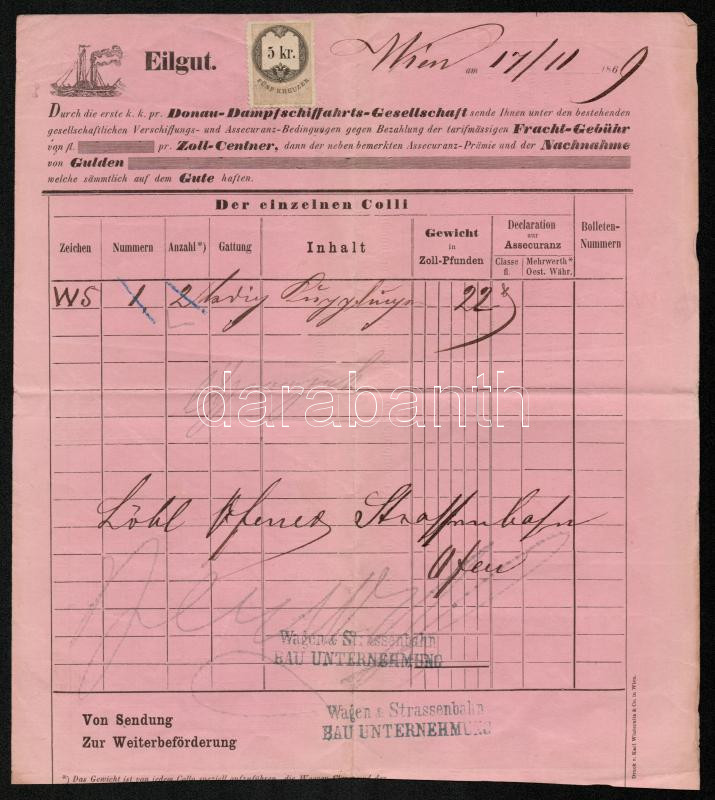 Eilgut.
5 kr.
FÜNF KREUZER
Wien am 17/11 1869
Durch die erste k. k. pr. Donau-Dampfschiffahrts-Gesellschaft sende Ihnen unter den bestehenden
gesellschaftlichen Verschiffungs- und Assecuranz-Bedingungen gegen Bezahlung der tarifmässigen Fracht-Gebühr
von fl. pr. Zoll-Centner, dann der neben bemerkten Assecuranz-Prämie und der Nachnahme
von Gulden
welche sämmtlich auf dem Gute haften.
Der einzelnen Colli
Zeichen Nummern Anzahl*) Gattung Inhalt Gewicht in Zoll-Pfunden Declaration zur Assecuranz Classe fl. Mehrwerth* Oest. Währ. Bolleten-Nummern
WS 1 2 22
darabanth
Löbl Ofener Strassenbahn
Ofen
Wagen & Strassenbahn
BAU UNTERNEHMUNG
Wagen & Strassenbahn
BAU UNTERNEHMUNG
Von Sendung
Zur Weiterbeförderung
*) Das Gewicht ist von jedem Collo speziell aufzuführen, die
Druck v. Karl & Co. in Wien.